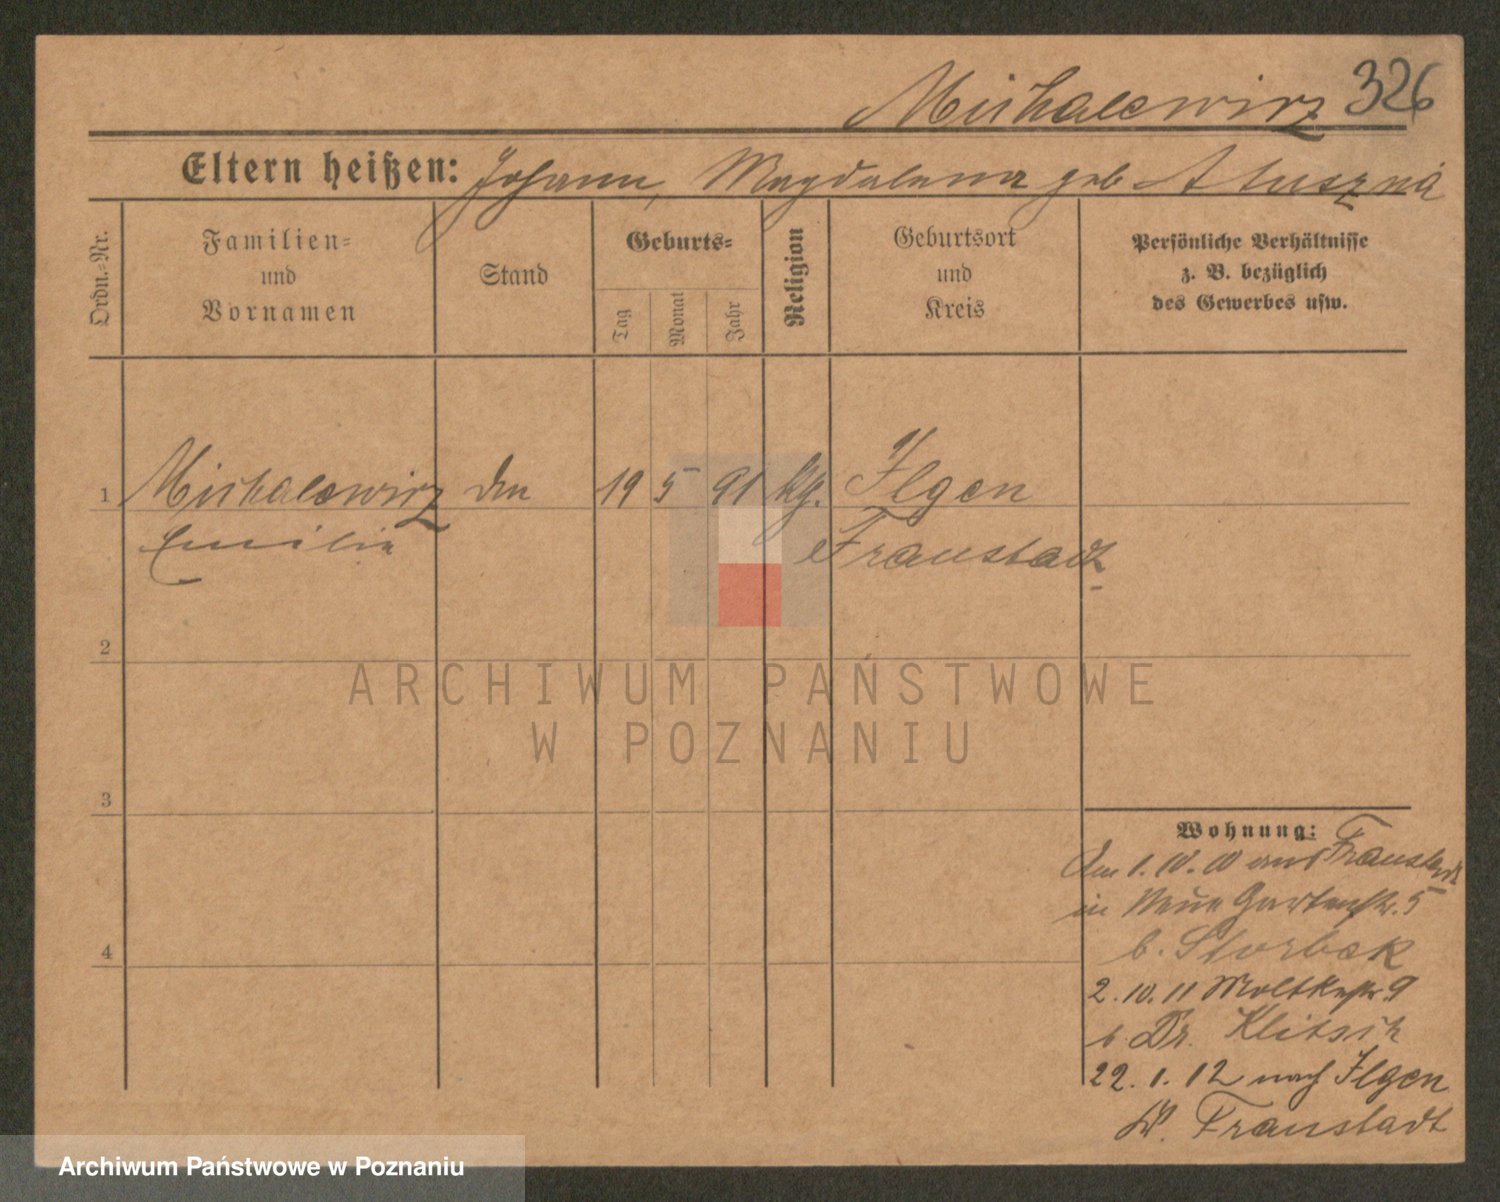 Michalewicz 326
Eltern heißen: Johann, Magdalena geb
Ordn.-Nr.
Familien-
und
Vornamen
Stand
Geburts-
Tag
Monat
Jahr
Religion
Geburtsort
und
Kreis
Persönliche Verhältnisse
z. B. bezüglich
des Gewerbes usw.
1 Michalewicz 19 5 91 Ilgen
Emilia Fraustadt
2
3
4
ARCHIWUM PAŃSTWOWE
W POZNANIU
Wohnung:
Am 1. 10. 10 aus Fraustadt
in Neue Gartenstr. 5
b. Storbek
2. 10. 11 Moltkestr. 9
b. Dr. Klitsch
22. 1. 12 nach Ilgen
Fraustadt
Archiwum Państwowe w Poznaniu